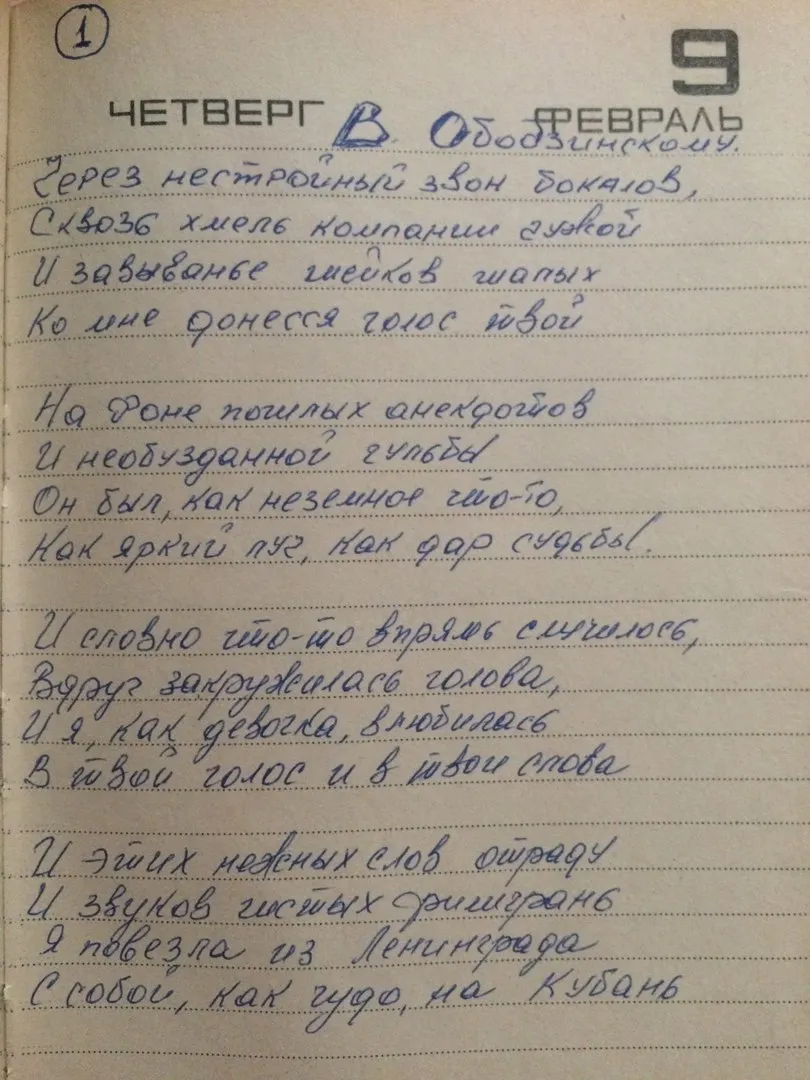 1
9
ЧЕТВЕРГ ФЕВРАЛЬ
В. Ободзинскому.
Через нестройный звон бокалов,
Сквозь хмель компании чужой
И завыванье шейков шалых
Ко мне донесся голос твой
На фоне пошлых анекдотов
И необузданной гульбы
Он был, как неземное что-то,
Как яркий луч, как дар судьбы.
И словно что-то впрямь случилось,
Вдруг закружилась голова,
И я, как девочка, влюбилась
В твой голос и в твои слова
И этих нежных слов отраду
И звуков чистых филигрань
Я повезла из Ленинграда
С собой, как чудо, на Кубань